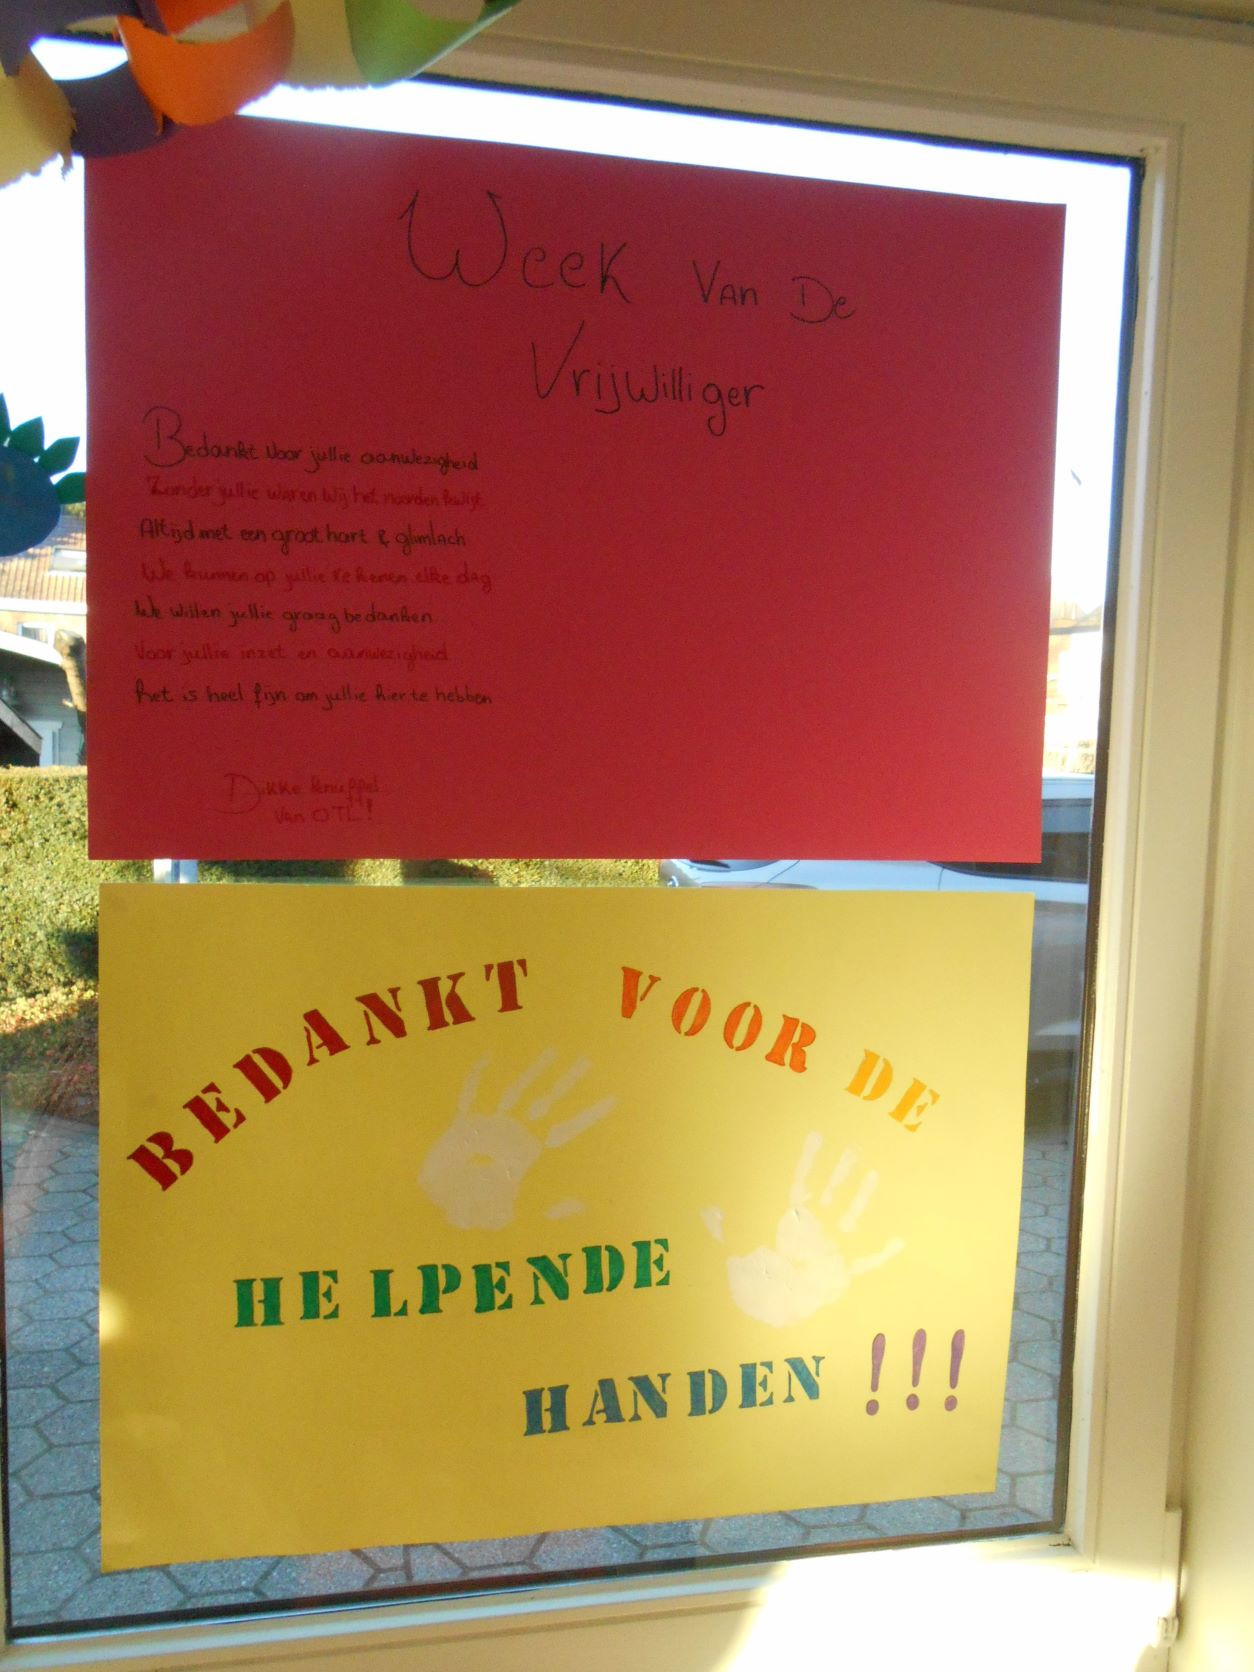 Week Van De
Vrijwilliger
Bedankt voor jullie aanwezigheid
Zonder jullie waren wij het noorden kwijt
Altijd met een groot hart & glimlach
We kunnen op jullie rekenen elke dag
We willen jullie graag bedanken
Voor jullie inzet en aanwezigheid
het is heel fijn om jullie hier te hebben
Dikke knuffel
Van OTL!
BEDANKT VOOR DE
HELPENDE
HANDEN !!!